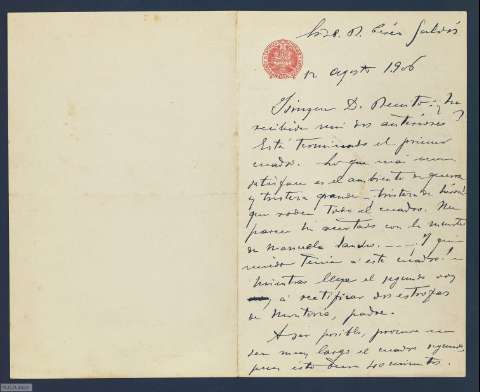 Sr. D. B. Pérez Galdós
12 agosto 1906
D. Benito: ¿ha
recibido mis dos anteriores?
Está terminado el primer
cuadro. Lo que más
es el ambiente de guerra
y tristeza grande - tristeza de
que rodea todo el cuadro. Me
parece he acertado con la muerte
de Manuela Sancho. - - - - Y qué
tiene este cuadro! -
Mientras llega el segundo voy
a rectificar dos estrofas
de Montoria, padre.
A ser posible, procure no
sea muy largo el cuadro segundo,
pues esto dura 40 minutos.